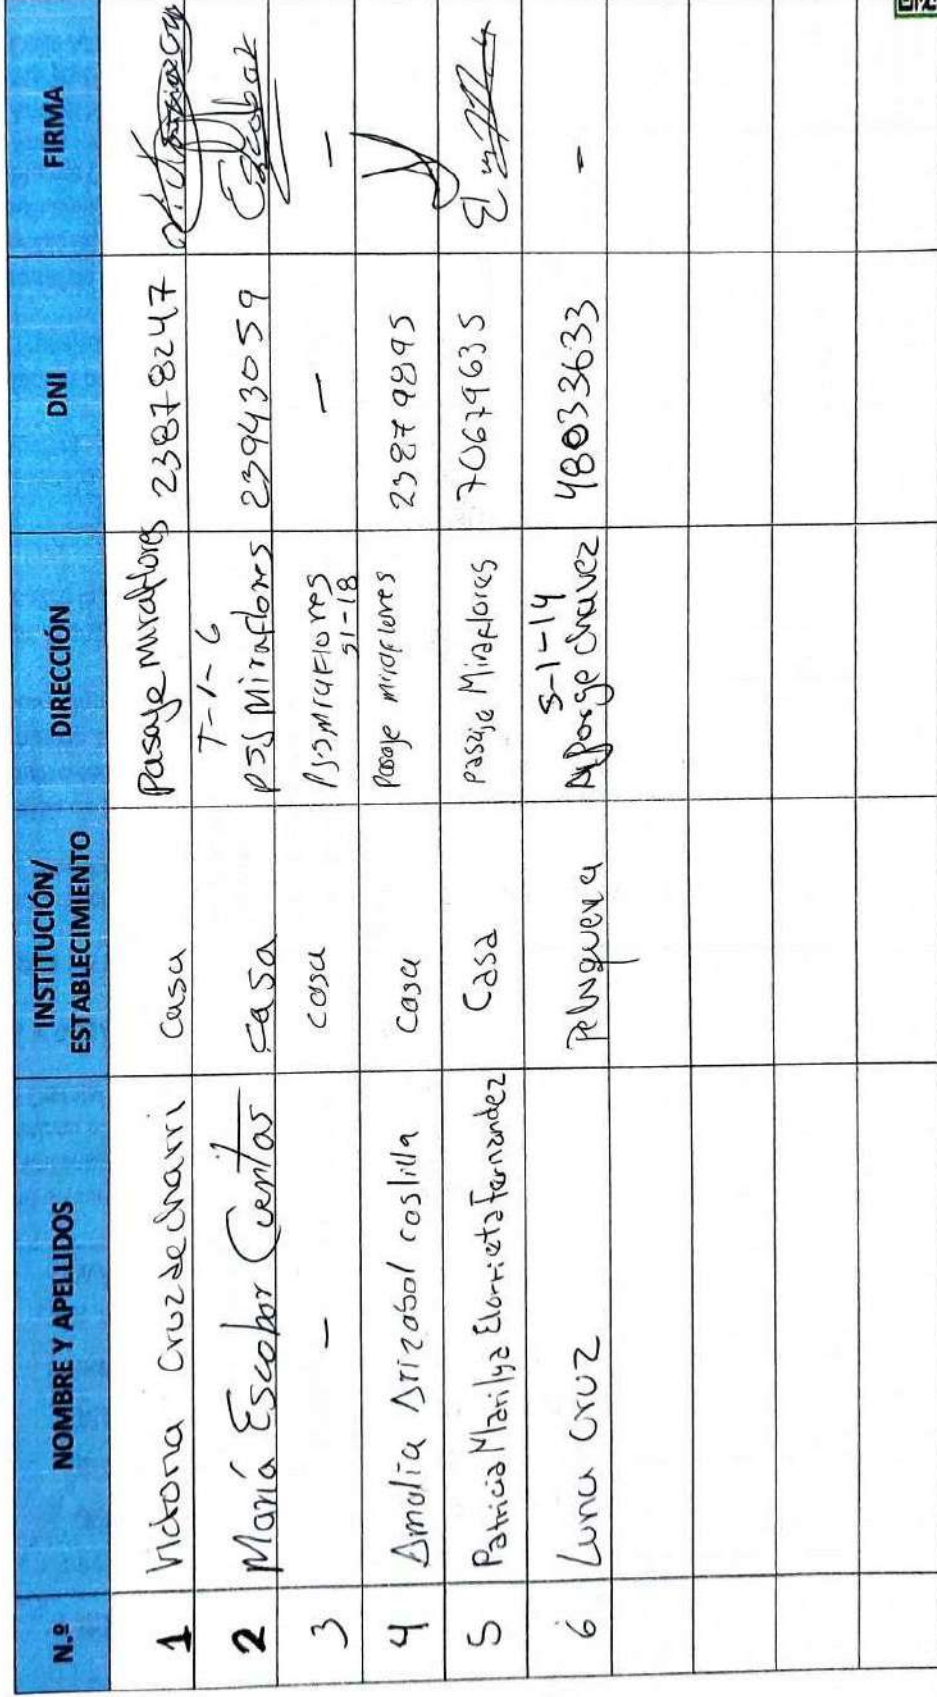 N.º NOMBRE Y APELLIDOS INSTITUCIÓN/ ESTABLECIMIENTO DIRECCIÓN DNI FIRMA
1 Victoria Cruz de Charri casa Pasaje Miraflores 23878247
2 María Escobar Cuentas casa T-1-6 psj Miraflores 23943059 Escobar
3 – casa Psje Miraflores S1-18 – –
4 Amalia Arizabal costilla casa Pasaje miraflores 23879895
5 Patricia Marilya Elorrieta Fernandez Casa pasaje Miraflores 70679635
6 Luna Cruz Peluqueria S-1-14 Jorge Chavez 48033633 –